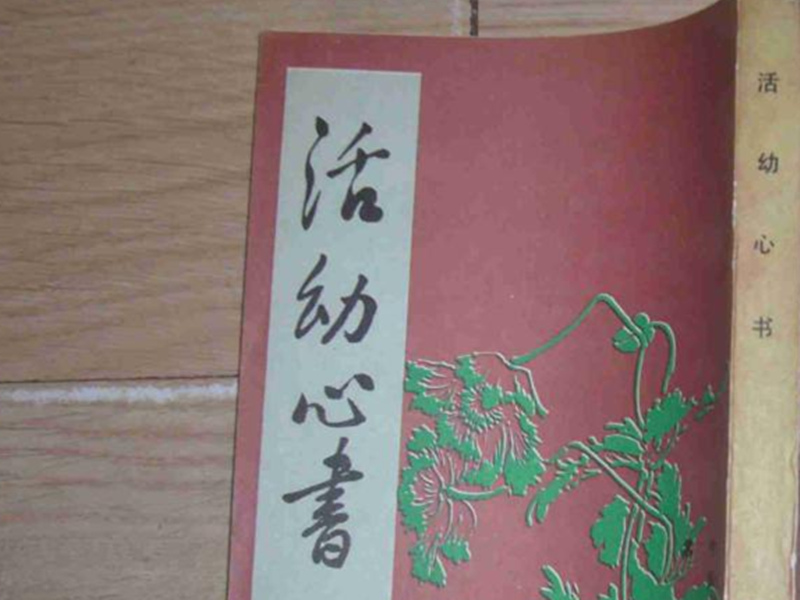 活幼心書
活幼心书